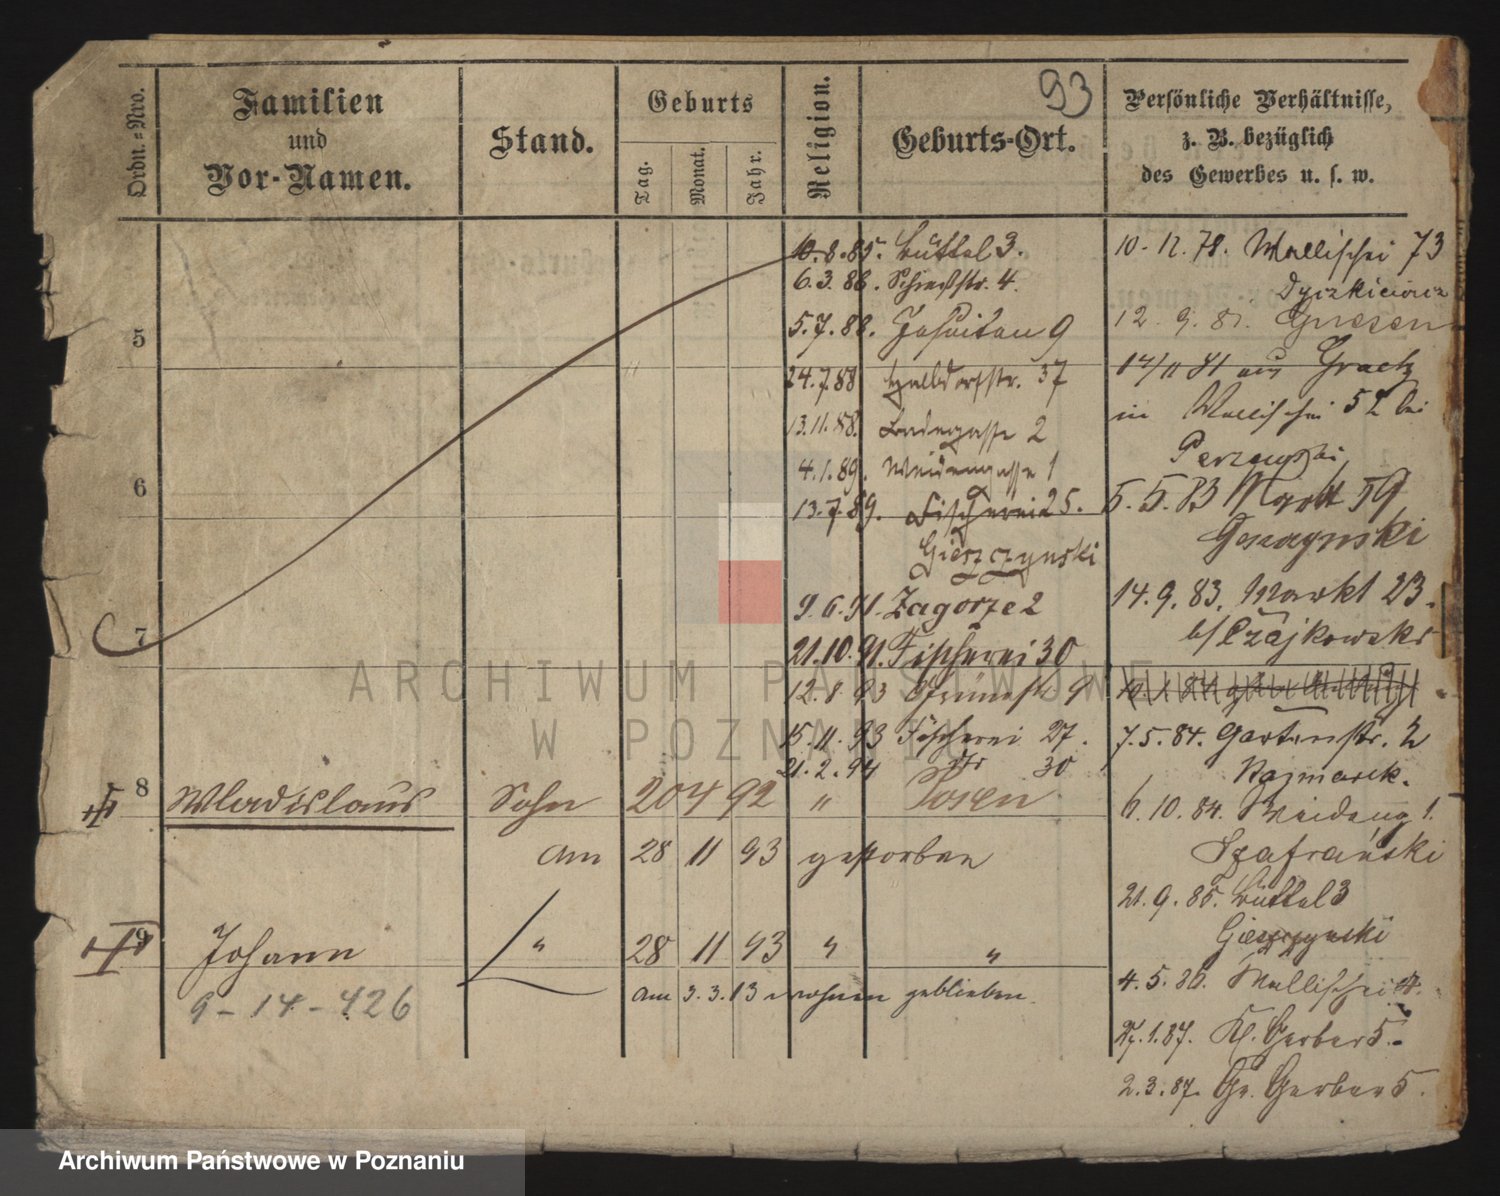 93
Ordn.-Nro.
Familien
und
Vor-Namen.
Stand.
Geburts
Tag.
Monat.
Jahr.
Religion.
Geburts-Ort.
Persönliche Verhältnisse,
z. B. bezüglich
des Gewerbes u. s. w.
5
6
7
8
9
10.8.85. Büttel 3.
6.3.86. Schießstr. 4.
5.7.88. Jesuiten 9
24.7.88 Halbdorfstr. 37
13.11.88. Badegasse 2
4.1.89. Weidengasse 1
13.7.89. Fischerei 25.
Gieszczynski
9.6.91. Zagorze 2
21.10.91. Fischerei 30
12.8.93 9
15.11.93 Fischerei 27.
21.2.94 30
Wladislaus Sohn 20 4 92 " Posen
am 28 11 93 gestorben
Johann " 28 11 93 " "
9-14-426
am 3.3.13 wohnen geblieben.
10.12.78. Wallischei 73
Dyczkiewicz
12.9.81. Gnesen
14/11 81 aus Graetz
in Wallischei 52 bei
5.5.83 Markt 59
14.9.83. Markt 23.
b/ Czajkowski
7.5.84. Gartenstr. 2
Kazmarek.
6.10.84. Weideng 1.
Szafranski
21.9.85. Büttel 3
Gieszczynski
4.5.86. Wallischei
27.1.87. Kl. Gerber 5.
2.3.87. Gr. Gerber 5.
ARCHIWUM PAŃSTWOWE
W POZNANIU
Archiwum Państwowe w Poznaniu